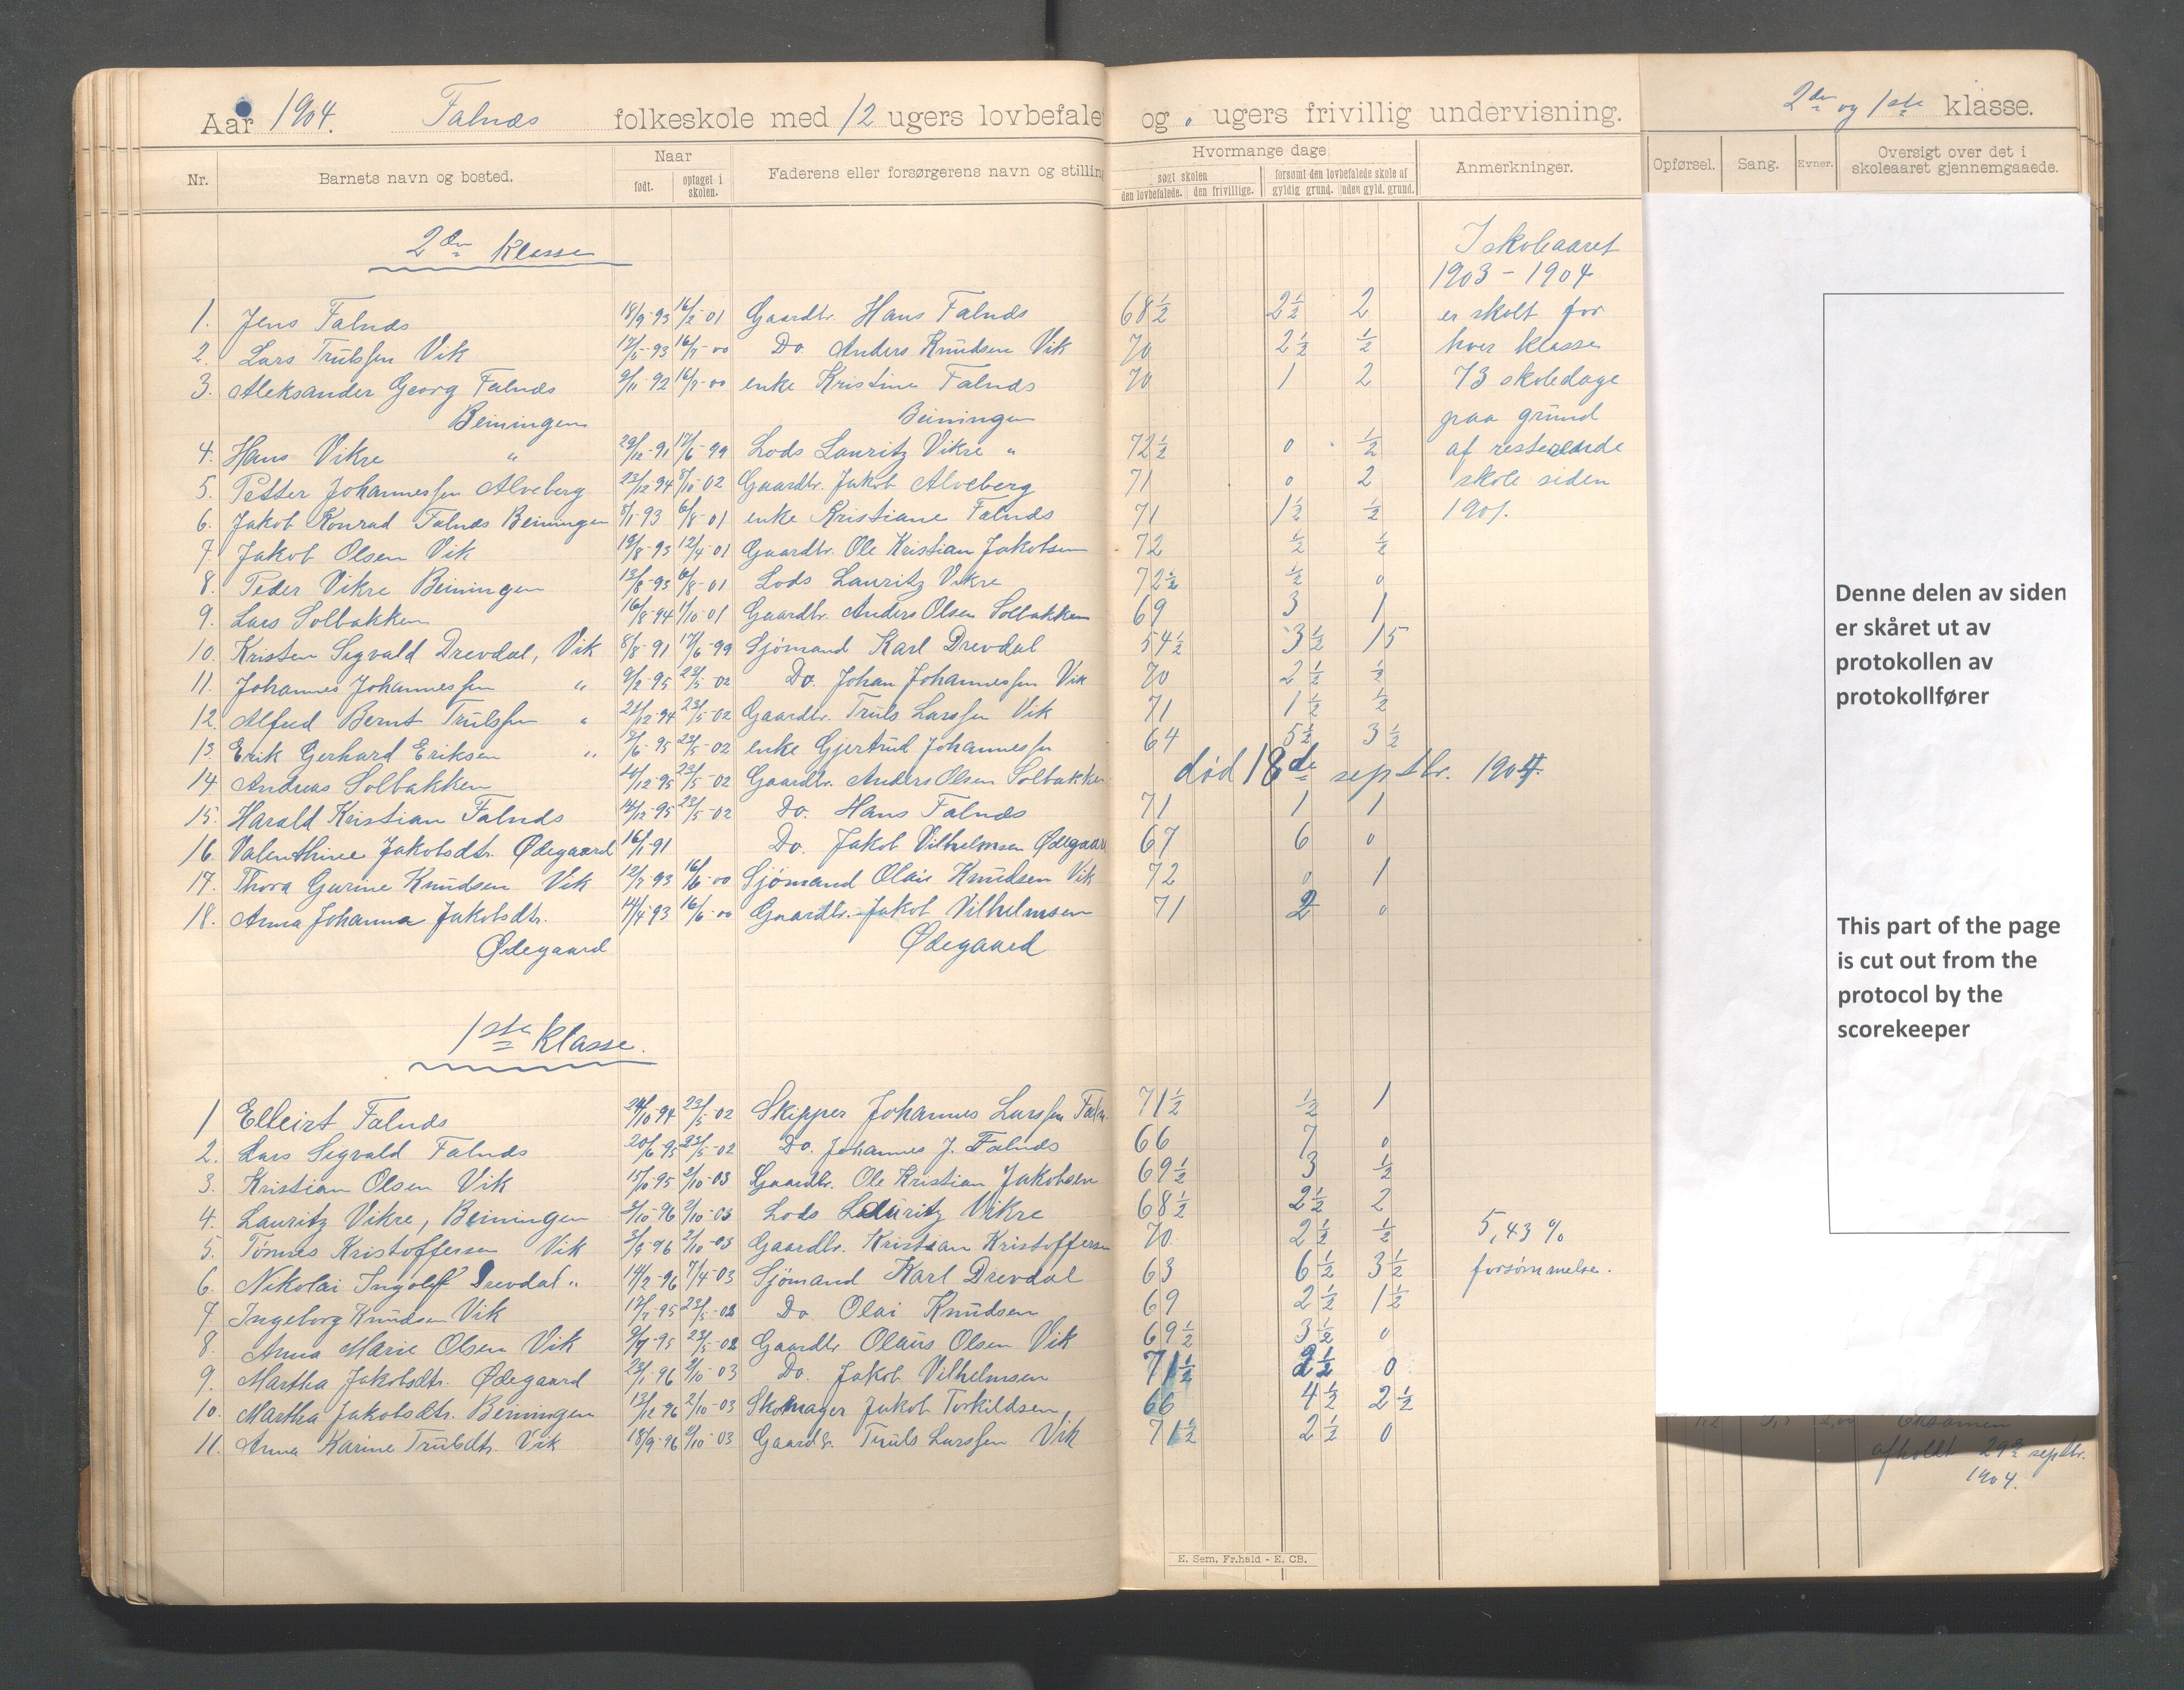 Aar 1904. Falnæs folkeskole med 12 ugers lovbefale og 0 ugers frivillig undervisning. 2den og 1ste klasse.
Nr. Barnets navn og bosted. Naar født. optaget i skolen. Faderens eller forsørgerens navn og stillin Hvormange dage søgt skolen den lovbefalede. den frivillige. forsømt den lovbefalede skole af gyldig grund. uden gyld. grund. Anmerkninger. Opførsel. Sang. Evner. Oversigt over det i skoleaaret gjennemgaaede.
2den Klasse
I skoleaaret
1903 - 1904
1. Jens Falnæs 18/9-93 16/2-01 Gaardbr. Hans Falnæs 68½ 2½ 2 er skolt for
2. Lars Trulssen Vik 12/5-93 16/7-00 Do. Anders Knudsen Vik 70 2½ ½ hver klasse
3. Aleksander Georg Falnæs 9/11-92 16/7-00 enke Kristine Falnæs 70 1 2 73 skoledage
Beiningen Beiningen paa grund
4. Hans Vikre " 29/12-91 17/6-99 Lods Lauritz Vikre " 72½ 0 ½ af resterende
5. Petter Johannessen Alveberg 23/12-94 8/10-02 Gaardbr. Jakob Alveberg 71 0 2 skole siden
6. Jakob Konrad Falnæs Beiningen 8/1-93 6/8-01 enke Kristiane Falnæs 71 1½ ½ 1901.
7. Jakob Olsen Vik 19/8-93 12/4-01 Gaardbr. Ole Kristian Jakobsen 72 ½ ½
8. Peder Vikre Beiningen 13/8-93 6/8-01 Lods Lauritz Vikre 72½ ½ 0
9. Lars Solbakken 16/8-94 1/10-01 Gaardbr. Anders Olsen Solbakken 69 3 1
10. Kristen Sigvald Drevdal, Vik 8/8-91 17/6-99 Sjømand Karl Drevdal 54½ 3½ 15
11. Johannes Johannessen " 9/2-95 23/5-02 Do. Johan Johannessen Vik 70 2½ ½
12. Alfred Bernt Trulssen " 21/12-94 23/5-02 Gaardbr. Truls Larssen Vik 71 1½ ½
13. Erik Gerhard Eriksen " 8/6-95 23/5-02 enke Gjertrud Johannessen 64 5½ 3½
14. Andreas Solbakken 14/12-95 23/5-02 Gaardbr. Anders Olsen Solbakken død 18de septbr. 1904.
15. Harald Kristian Falnæs 14/12-95 23/5-02 Do. Hans Falnæs 71 1 1
16. Valenthine Jakobsdtr. Ødegaard 16/1-91 Do. Jakob Vilhelmsen Ødegaard 67 6 0
17. Thora Gurine Knudsen Vik 12/7-93 16/6-00 Sjømand Olai Knudsen Vik 72 0 1
18. Anna Johanna Jakobsdtr. 14/4-93 16/6-00 Gaardbr. Jakob Vilhelmsen 71 2 0
Ødegaard Ødegaard
1ste Klasse.
1 Elleirt Falnæs 24/10-94 23/5-02 Skipper Johannes Larssen Faln. 71½ ½ 1
2. Lars Sigvald Falnæs 20/6-95 23/5-02 Do. Johannes J. Falnæs 66 7 0
3. Kristian Olsen Vik 15/10-95 2/10-03 Gaardbr. Ole Kristian Jakobsen 69½ 3 ½
4. Lauritz Vikre, Beiningen 5/10-96 2/10-03 Lods Lauritz Vikre 68½ 2½ 2
5. Tønnes Kristoffersen Vik 3/9-96 2/10-03 Gaardbr. Kristian Kristoffersen 70 2½ ½ 5,43 %
6. Nikolai Ingolf Drevdal " 14/2-96 7/4-03 Sjømand Karl Drevdal 63 6½ 3½ forsømmelse.
7. Ingeborg Knudsen Vik 17/7-95 23/5-02 Do Olai Knudsen 69 2½ 1½
8. Anna Marie Olsen Vik 9/9-95 23/5-02 Gaardbr Olaus Olsen Vik 69½ 3½ 0
9. Martha Jakobsdtr. Ødegaard 23/1-96 2/10-03 Do. Jakob Vilhelmsen 71½ 2½ 0
10. Martha Jakobsdtr. Beiningen 13/12-96 2/10-03 Skomager Jakob Torkildsen 66 4½ 2½
11. Anna Karine Trulsdtr. Vik 18/9-96 2/10-03 Gaardbr. Truls Larssen Vik 71½ 2½ 0
Denne delen av siden
er skåret ut av
protokollen av
protokollfører
This part of the page
is cut out from the
protocol by the
scorekeeper
Eksamen
afholdt 29de septbr.
1904.
E. Sem, Fr.hald - E. CB.